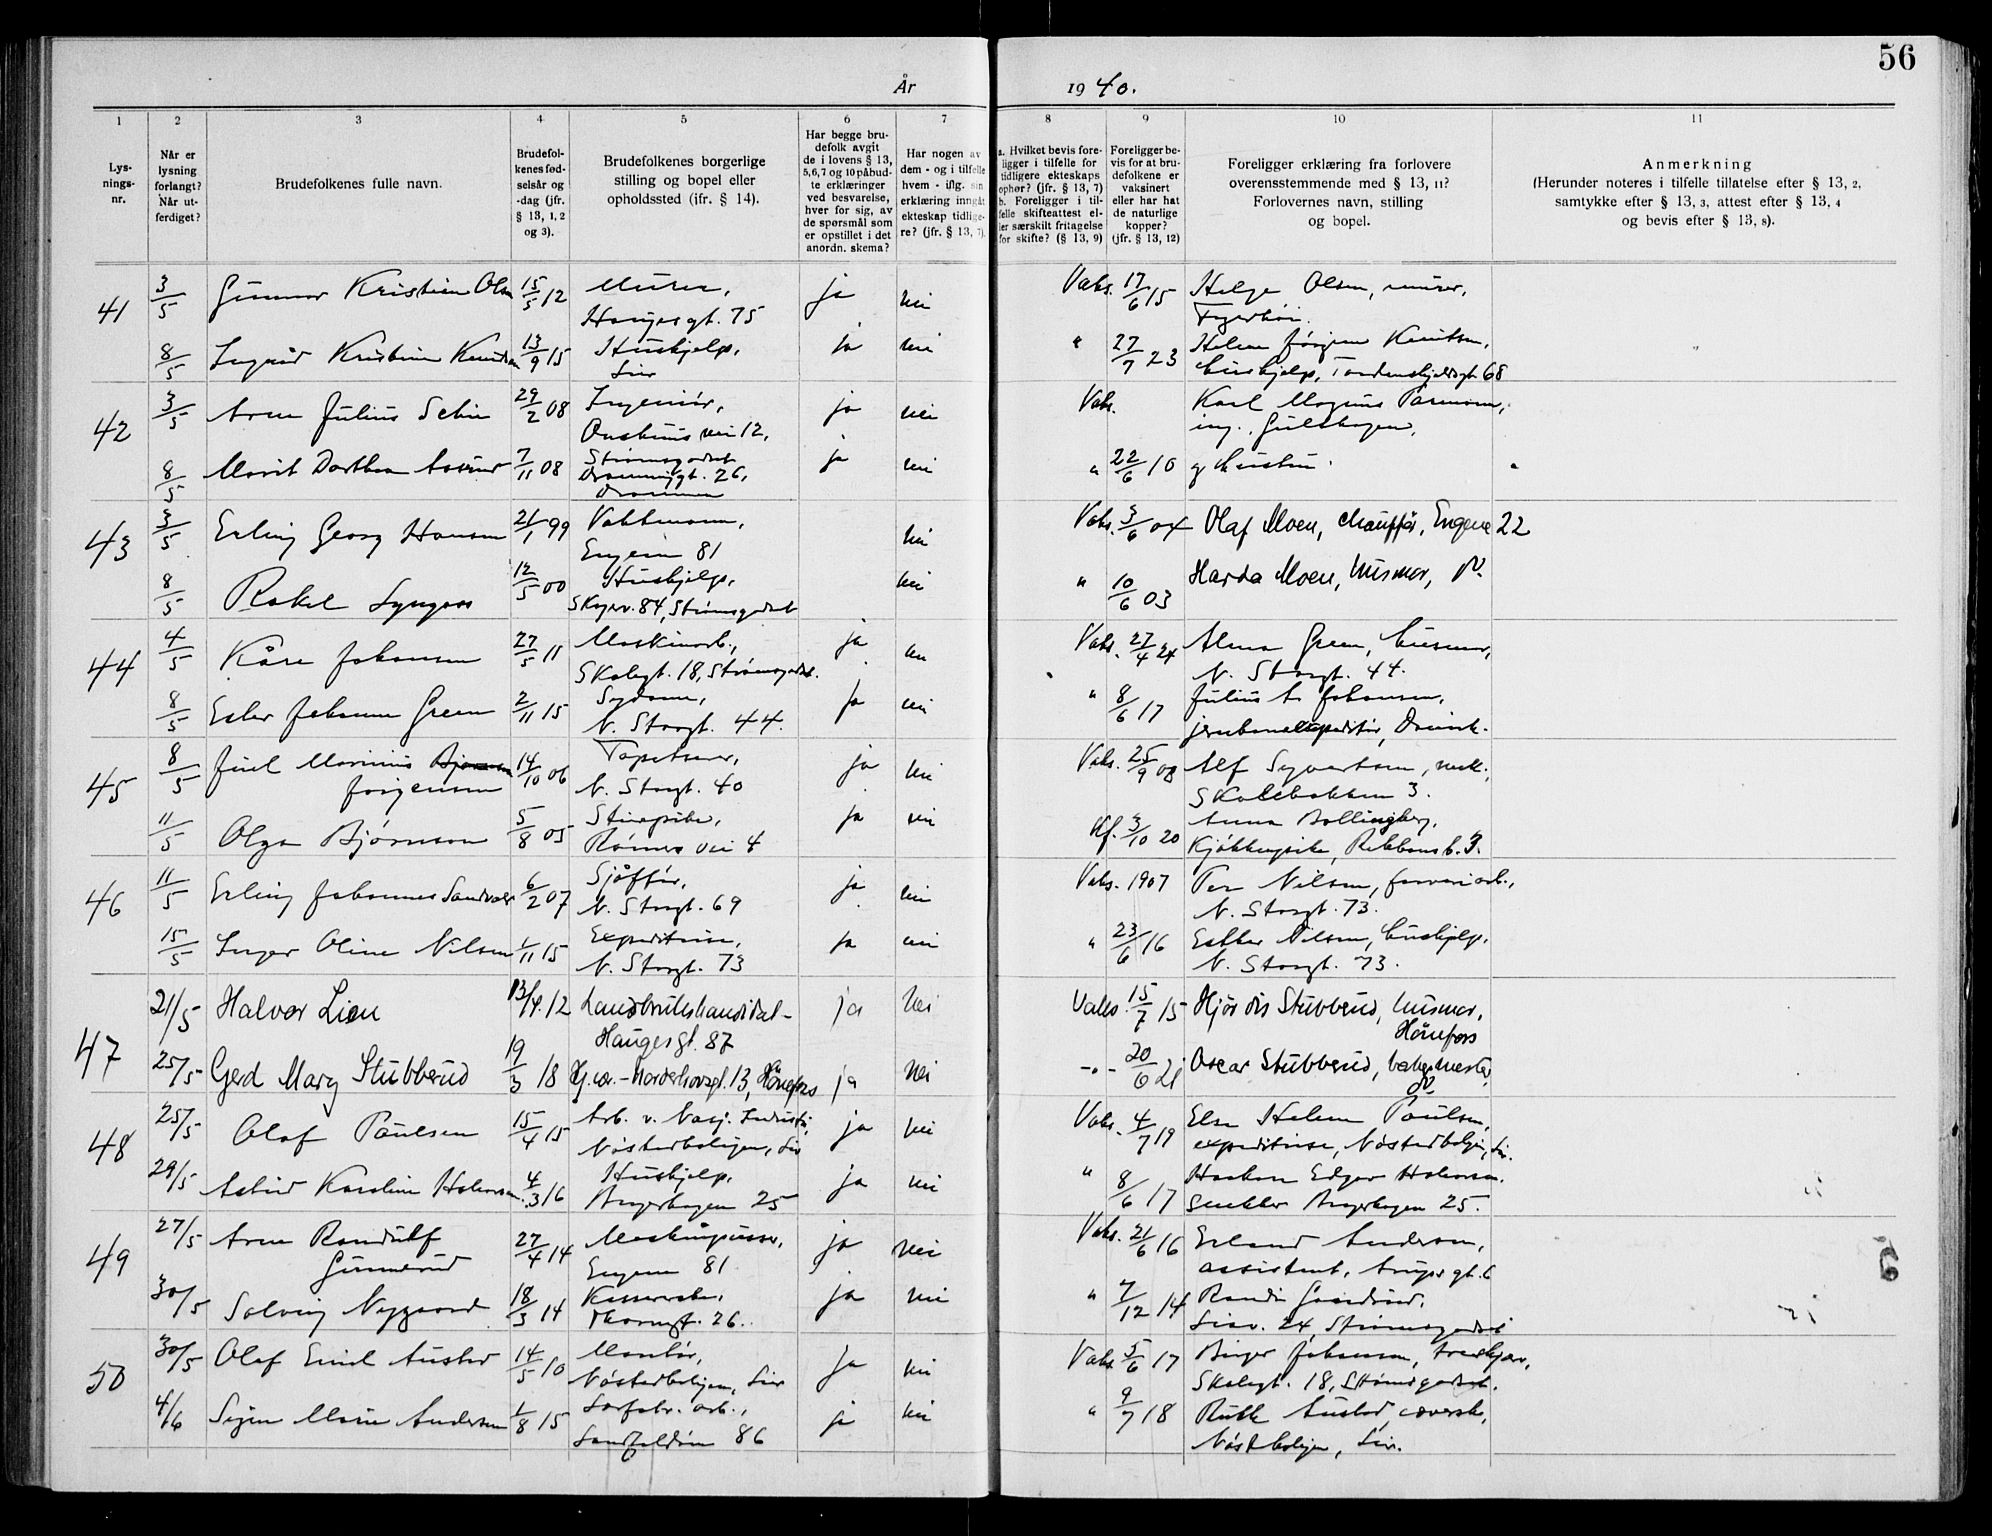 56
År 1940.
1
2
3
4
5
6
7
8
9
10
11
Lys-
nings-
nr.
Når er
lysning
forlangt?
Når ut-
ferdiget?
Brudefolkenes fulle navn.
Brudefol-
kenes fød-
selsår og
-dag (jfr.
§ 13, 1, 2
og 3).
Brudefolkenes borgerlige
stilling og bopel eller
opholdssted (jfr. § 14).
Har begge bru-
defolk avgit
de i lovens § 13,
5, 6, 7 og 10 påbud-
te erklæringer
ved besvarelse,
hver for sig, av
de spørsmål som
er opstillet i det
anordn. skema?
Har nogen av
dem - og i tilfelle
hvem - iflg. sin
erklæring inngått
ekteskap tidlige-
re? (jfr. § 13, 7).
a. Hvilket bevis fore-
ligger i tilfelle for
tidligere ekteskaps
ophør? (jfr. § 13, 7)
b. Foreligger i til-
felle skifteattest el-
ler særskilt fritagelse
for skifte? (§ 13, 9)
Foreligger be-
vis for at bru-
defolkene er
vaksinert
eller har hat
de naturlige
kopper?
(jfr. § 13, 12)
Foreligger erklæring fra forlovere
overensstemmende med § 13, 11?
Forlovernes navn, stilling
og bopel.
Anmerkning
(Herunder noteres i tilfelle tillatelse efter § 13, 2,
samtykke efter § 13, 3, attest efter § 13, 4
og bevis efter § 13, 8).
41 3/5 Gunnar Kristian Olsen 15/5 12 Murer, ja nei Vaks. 17/6 15 Helge Olsen, murer,
Haugesgt. 75
8/5 Ingrid Kristine Knudsen 13/9 15 Hushjelp, ja nei " 27/7 23 Helene Jørgine Knutsen,
Lier hushjelp, Tordenskjoldsgt. 68
42 3/5 Arne Julius 29/2 08 Ingeniør, ja nei Vaks. Karl Magnus
vei 12, ing., Gulskogen,
8/5 Marit Dorthea 7/11 08 Strømsgodset ja nei " 22/6 10 og hustru.
Drammensgt. 26,
Drammen
43 3/5 Erling Georg Hansen 21/1 99 Vaktmann, nei Vaks. 3/6 04 Olaf Moen, chauffør, Engene 22
Engene 81
8/5 Rakel 12/5 00 Hushjelp, nei " 10/6 03 Harda Moen, husmor,
84, Strømsgodset
44 4/5 Kåre Johansen 27/5 11 Maskinarb., ja nei Vaks. 27/4 24 Alma Green, husmor,
Skolegt. 18, Strømsgodset. N. Storgt. 44.
8/5 Ester Johanne Green 2/11 15 Sydame, ja nei " 8/6 17 Julius A. Johansen,
N. Storgt. 44.
45 8/5 Juel Marinius Jørgensen 14/10 06 Tapetserer, ja nei Vaks. 25/9 08 Alf Syvertsen, mek.,
N. Storgt. 40 Skolebakken 3.
11/5 Olga Bjørnson 5/8 05 ja nei Kf. 3/10 20 Anna Bollingberg,
vei 4 Kjøkkenpike, 3.
46 11/5 Erling Johannes Sandvold 6/2 07 Sjåfør, ja nei Vaks. 1907 Per Nilsen, farveriarb.,
N. Storgt. 69 N. Storgt. 73.
15/5 Inger Oline Nilsen 1/11 15 Expeditrise, ja nei " 23/6 16 Esther Nilsen, hushjelp.
N. Storgt. 73 N. Storgt. 73.
47 21/5 Halvor Lien 13/4. 12 Landbrukskandidat- ja Nei Vaks. 15/7 15 Hjördis Stubberud, husmor,
Haugesgt. 87 Hönefoss
25/5 Gerd Mary Stubberud 19/3 18 Hj. v.-Norderhovsgt. 13, Hönefoss ja Nei -"- 20/6 21 Oscar Stubberud,
48 25/5 Olaf Paulsen 15/4 15 Arb. v. Nasj. Industri, ja nei Vaks. 4/7 19 Else Helene Paulsen,
Nøstedboligen, Lier expeditrise, Nøstedboligen, Lier.
29/5 Astrid Karoline Halvorsen 4/3 16 Hushjelp, ja nei " 8/6 17 Haakon Edgar Halvorsen.
Angerhagen 25 snekker Angerhagen 25.
49 27/5 Arne Randulf 27/4 14 Maskinpusser, ja nei Vaks. 21/6 16 Erland Andersen,
Gunnerud Engene 81 assistent,
30/5 Solveig Nygaard 18/3 14 Kasserske, ja nei " 7/12 14 Randi
26. 24, Strømsgodset
50 30/5 Olaf Emil Austad 14/5 10 Montør, ja nei Vaks. 5/6 17 Birger Johansen,
Nøstedboligen, Lier Skolegt. 18, Strømsgodset.
4/6 Signe Marie Andersen 1/8 15 arb., ja nei " 9/7 18 Ruth Austad,
86 Lier.